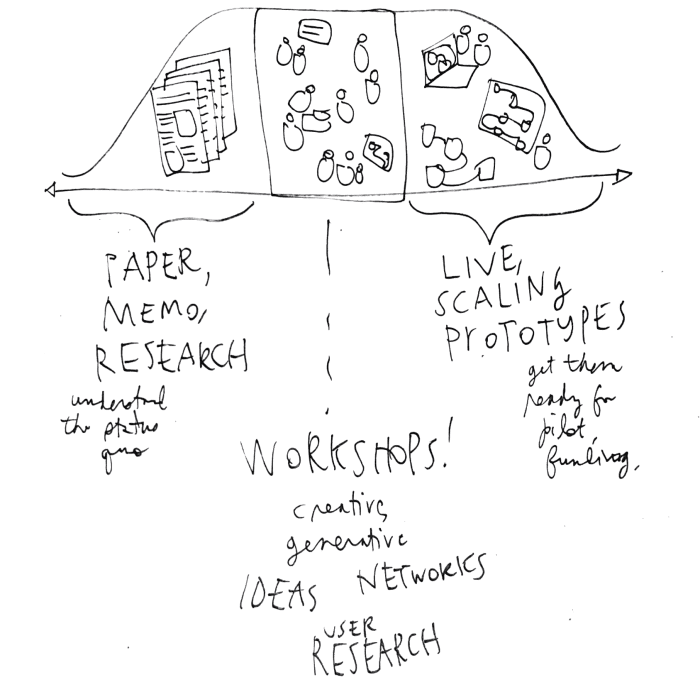 PAPER,
MEMO,
RESEARCH
understand
the status
quo
WORKSHOPS!
creative,
generative
IDEAS NETWORKS
USER
RESEARCH
LIVE,
SCALING
PROTOTYPES
get them
ready for
pilot,